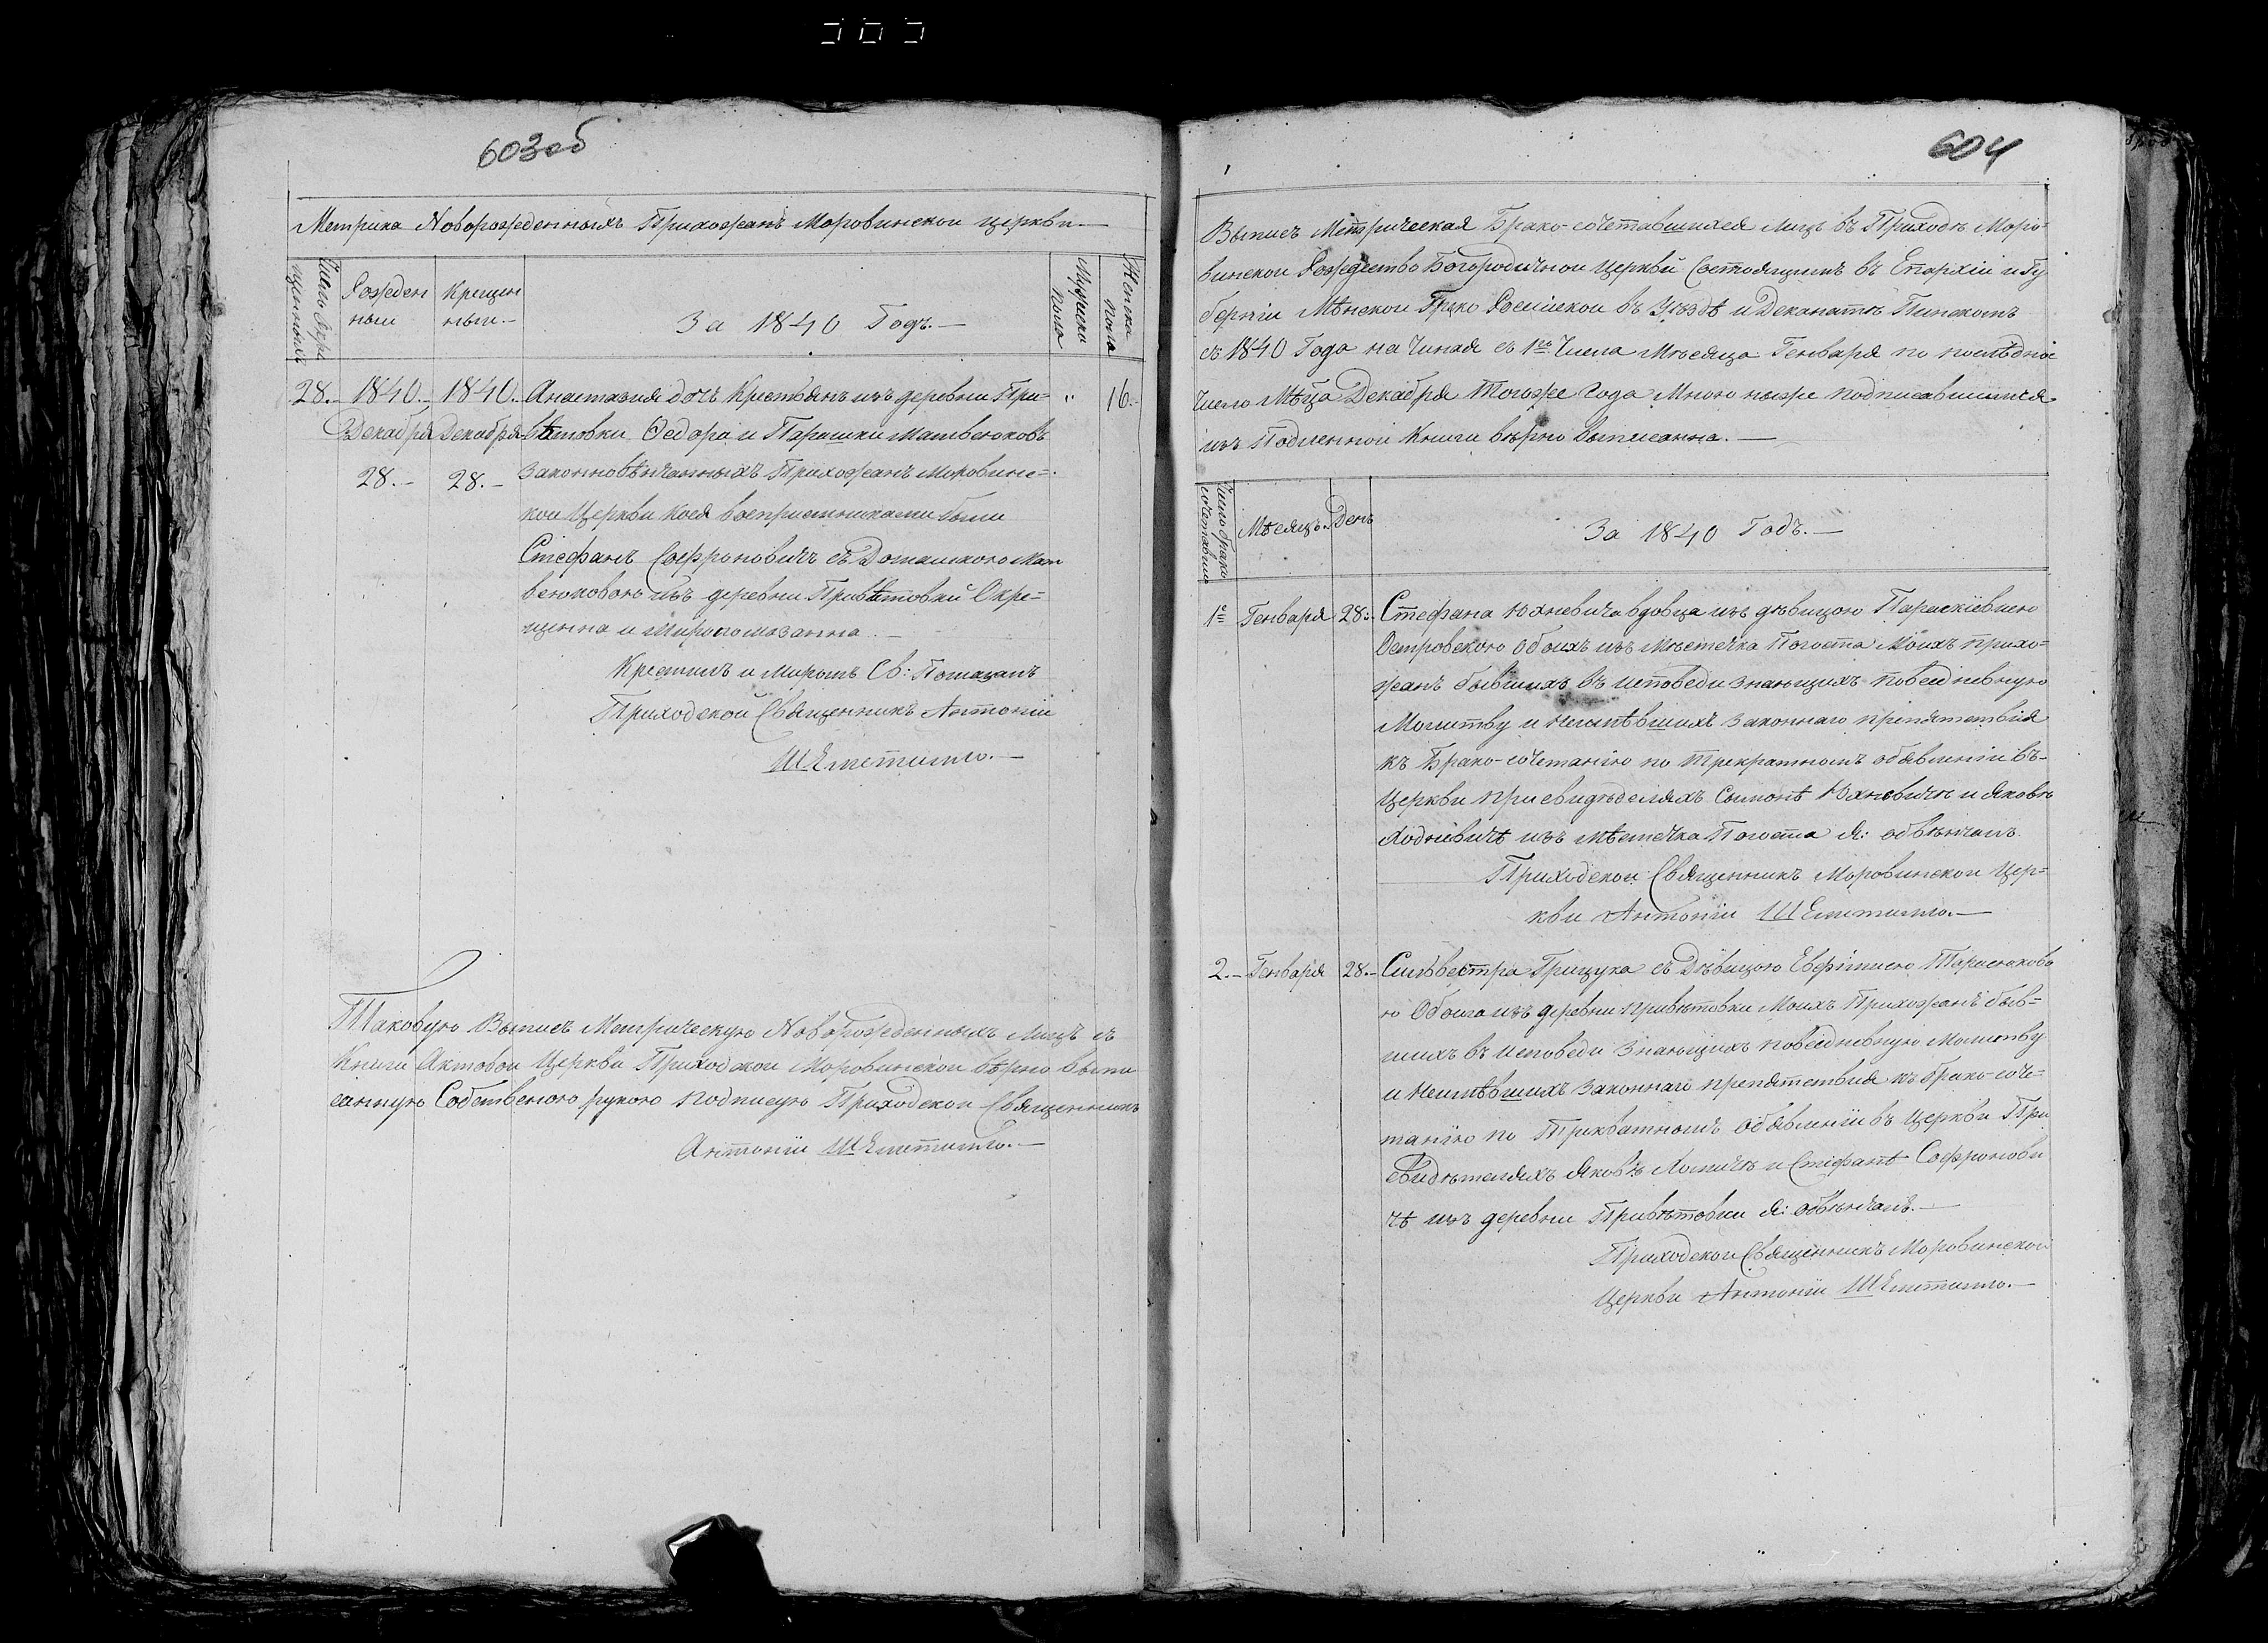 603об
Метрика Новорожденныхъ Прихожанъ Моровинской церкви.—
Число Окре
щенныхъ
Рожден
ныи
Крещен
ныи.—
За 1840 Годъ.—
Мужеска
Пола
Женска
Пола
28.— 1840.— 1840.— Анастазия дочь Крестьянъ изъ деревни При= " 16.—
Декабря Декабря вѣтовки Ѳедора и Парашки Матвеюковъ
28.— 28.— Законновѣнчанныхъ Прихожанъ Моровинс=
кои Церкви коея восприемниками были
Стефанъ Софроновичъ съ Домашкою Мат
веюковою изъ деревни Привѣтовки Окре=
щенна и Миропомазанна.—
Крестилъ и Миромъ Св: Помазалъ
Приходской Священникъ Антоніи
Шеметилло.—
Таковую Выпись Метрическую Новорожденныхъ Лицъ съ
Книги Актовои Церкви Приходской Моровинской вѣрно выпи
санную Собственою рукою подписую Приходскои Священникъ
Антоніи Шеметилло.—
604
Выпись Метрическая Брако-сочетавшихся Лицъ въ Приходѣ Моро=
винскои Рождество Богородичнои Церкви Состоящимъ въ Епархіи и Гу
берніи Мѣнскои Греко Россіискои въ Уѣздѣ и Деканатѣ Пинскомъ
съ 1840 Года на чиная съ 1го Числа Мѣсяца Генваря по послѣдніе
Число Мѣца Декабря Тогоже Года Мною ниже подписавшимся
изъ Подленнои Книги вѣрно выписанна.—
Число Брако
сочетавши
Мѣсяцъ. День
За 1840 Годъ.—
1е Генваря 28: Стефана Юхневича вдовца изъ дѣвицою Парасківвиею
Островскою обоихъ изъ Мѣстечка Погоста Моихъ прихо=
жанъ бывшихъ въ исповеди знающихъ повседневную
Молитву и неимѣвшихъ законнаго препятствия
къ Брако-сочетанію по трекратномъ объявленіи въ
Церкви при свидѣделяхъ Сымонѣ Юхневичѣ и Яковѣ
Ходневичѣ изъ мѣстечка Погоста Я: обвѣнчалъ
Приходскои Священникъ Моровинскои Цер=
кви Антоніи Шеметилло.—
2.— Генваря 28.— Сильвестра Грицука съ Дѣвицою Евфіміею Тарасюково
ю Обоига изъ деревни привѣтовки Моихъ Прихожанъ быв=
шихъ въ исповеди знающихъ повседневную Молитву
и неимѣвшихъ законнаго препятствия къ Брако-соче=
танію по Трикратномъ Объявленіи въ Церкви При
свидѣтеляхъ Яковѣ Хомичѣ и Стефанѣ Софронови
чѣ изъ деревни Привѣтовки Я: обвѣнчалъ.—
Приходскои Священникъ Моровинскои
Церкви Антоніи Шеметилло.—